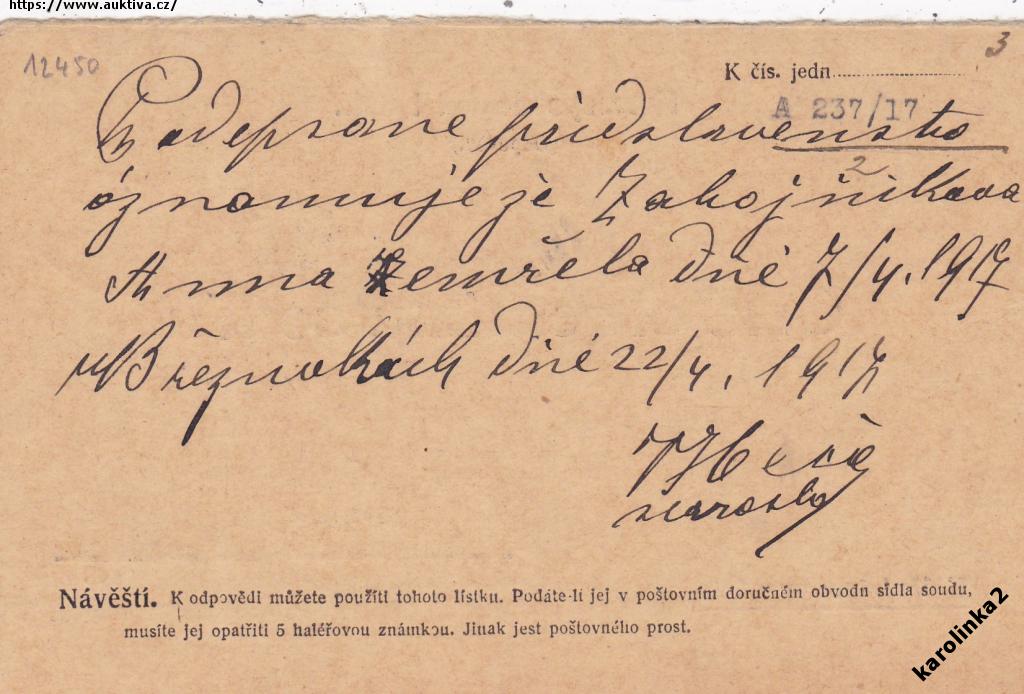 https://www.auktiva.cz/
12450
3
K čís. jedn
A 237/17
Podepsane předslavensto
2
oznamuje že Zahojníkova
Anna zemřela dne 7/4. 1917
v Březnokách dne 22/4. 1917
starosta
Návěští. K odpovědi můžete použíti tohoto lístku. Podáte-li jej v poštovním doručném obvodu sídla soudu,
musíte jej opatřiti 5 haléřovou známkou. Jinak jest poštovného prost.
karolinka2